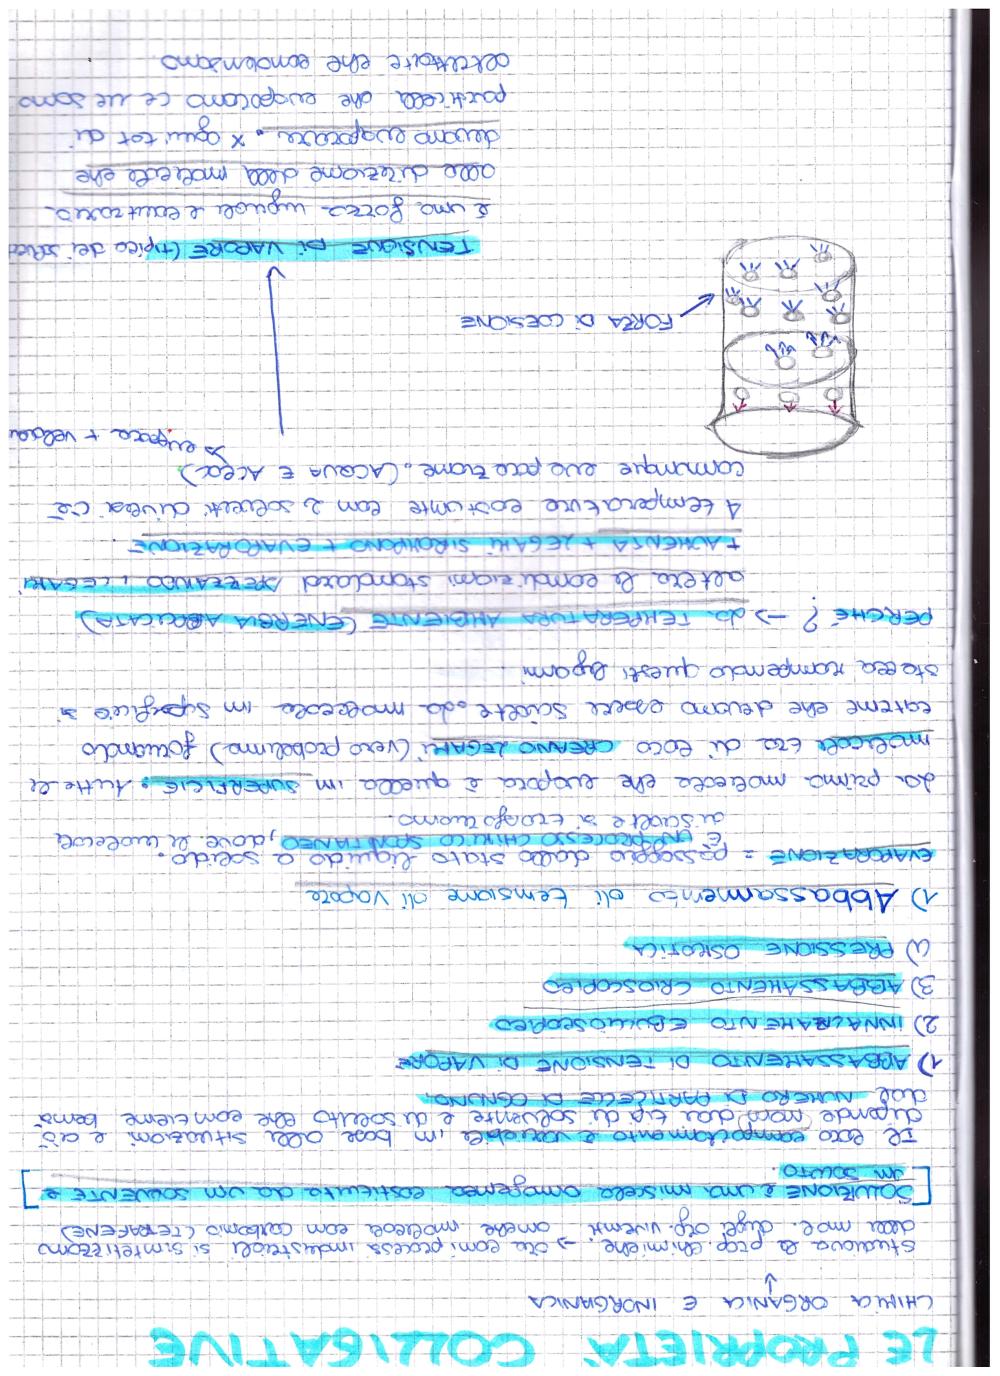 LE PROPRIETA' COLLIGATIVE
CHIMICA ORGANICA E INORGANICA
↓
studiava le prop. chimiche → ora coni process. industriali si sintetizzano
delle mol. degli org. viventi anche molecole con carbonio (TETRAFENE)
[SOLUZIONE è una miscela omogenea costituita da un SOLVENTE e
un SOLUTO.]
Il loro comportamento è variabile in base alle situazioni e ciò
dipende non dal tip di solvente e di soluto che contiene bensì
dal NUMERO DI PARTICELLE DI OGNUNO.
1) ABBASSAMENTO DI TENSIONE DI VAPORE
2) INNALZAMENTO EBULLIOSCOPICO
3) ABBASSAMENTO CRIOSCOPICO
4) PRESSIONE OSMOTICA
1) Abbassamento di tensione di vapore
EVAPORAZIONE = passaggio dallo stato liquido a solido.
È UN PROCESSO CHIMICO SPONTANEO, dove le molecole
di scuole si trasformano.
La prima molecola che evapora è quella in SUPERFICIE. Tutte le
molecole tra di loro CREANO LEGAMI (vero probalimo) formando
catene che devono essere sciolte da molecola in superficie si
stacca rompendo questi legami.
PERCHÉ? → da TEMPERATURA AMBIENTE (ENERGIA ABBLICATA)
altera le condizioni standard SPEZZANDO i LEGAMI
+ AUMENTA + LEGAMI SI ROMPONO + EVAPORAZIONE.
A temperature costante con 2 solventi diversi c'è
comunque evaporazione. (ACQUA E ACEA)
↳ evapora + veloce
FORZA DI COESIONE
TENSIONE DI VAPORE (tipica dei
è una forza uguale e contraria
alla direzione della molecole che
devono evaporare. X ogni tot di
particelle che evaporano ce ne sono
altrettante che condensano.